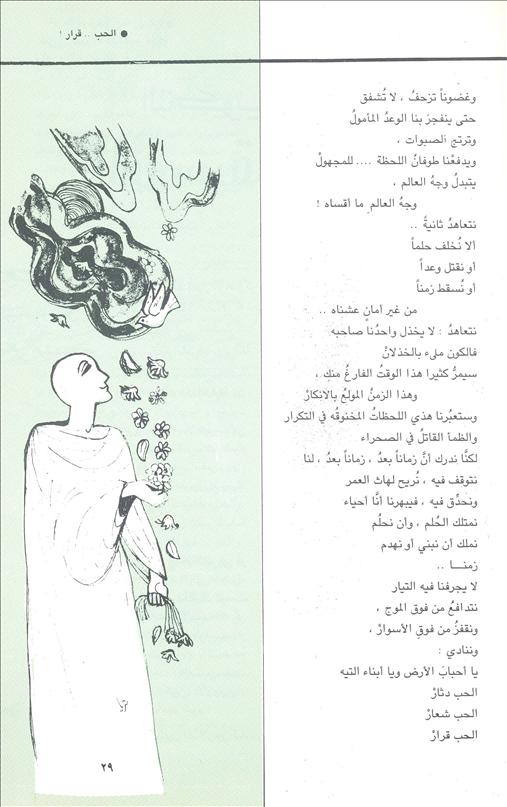 ● الحب .. قرار !
وغضوناً تزحفُ ، لا تُشفق
حتى ينفجرَ بنا الوعدُ المأمولُ
وترتج الصبوات ،
ويدفعُنا طوفانُ اللحظة .... للمجهولْ
يتبدلُ وجهُ العالم ،
وجهُ العالمِ ما أقساه !
نتعاهدُ ثانيةً ..
ألا نُخلف حلماً
أو نقتل وعداً
أو نُسقط زمناً
من غير أمانٍ عشناه ..
نتعاهدُ : لا يخذل واحدُنا صاحبه
فالكون مليء بالخذلانْ
سيمرُّ كثيرا هذا الوقتُ الفارغُ منك ،
وهذا الزمنُ المولعُ بالانكارْ
وستعبُرنا هذي اللحظاتُ المخنوقه في التكرار
والظمأ القاتلُ في الصحراء
لكنَّا ندرك أنَّ زماناً بعدُ ، زماناً بعدُ ، لنا
نتوقف فيه ، نُريح لهاث العمر
ونحدِّق فيه ، فيبهرنا أنَّا أحياء
نمتلك الحُلم ، وأن نحلُم
نملك أن نبني أو نهدم
زمنـــا ..
لا يجرفنا فيه التيار
نتدافعُ من فوق الموج ،
ونقفزُ من فوقِ الأسوارْ ،
وننادي :
يا أحبابَ الأرض ويا أبناء التيه
الحب دثارْ
الحب شعارْ
الحب قرارْ
٢٩